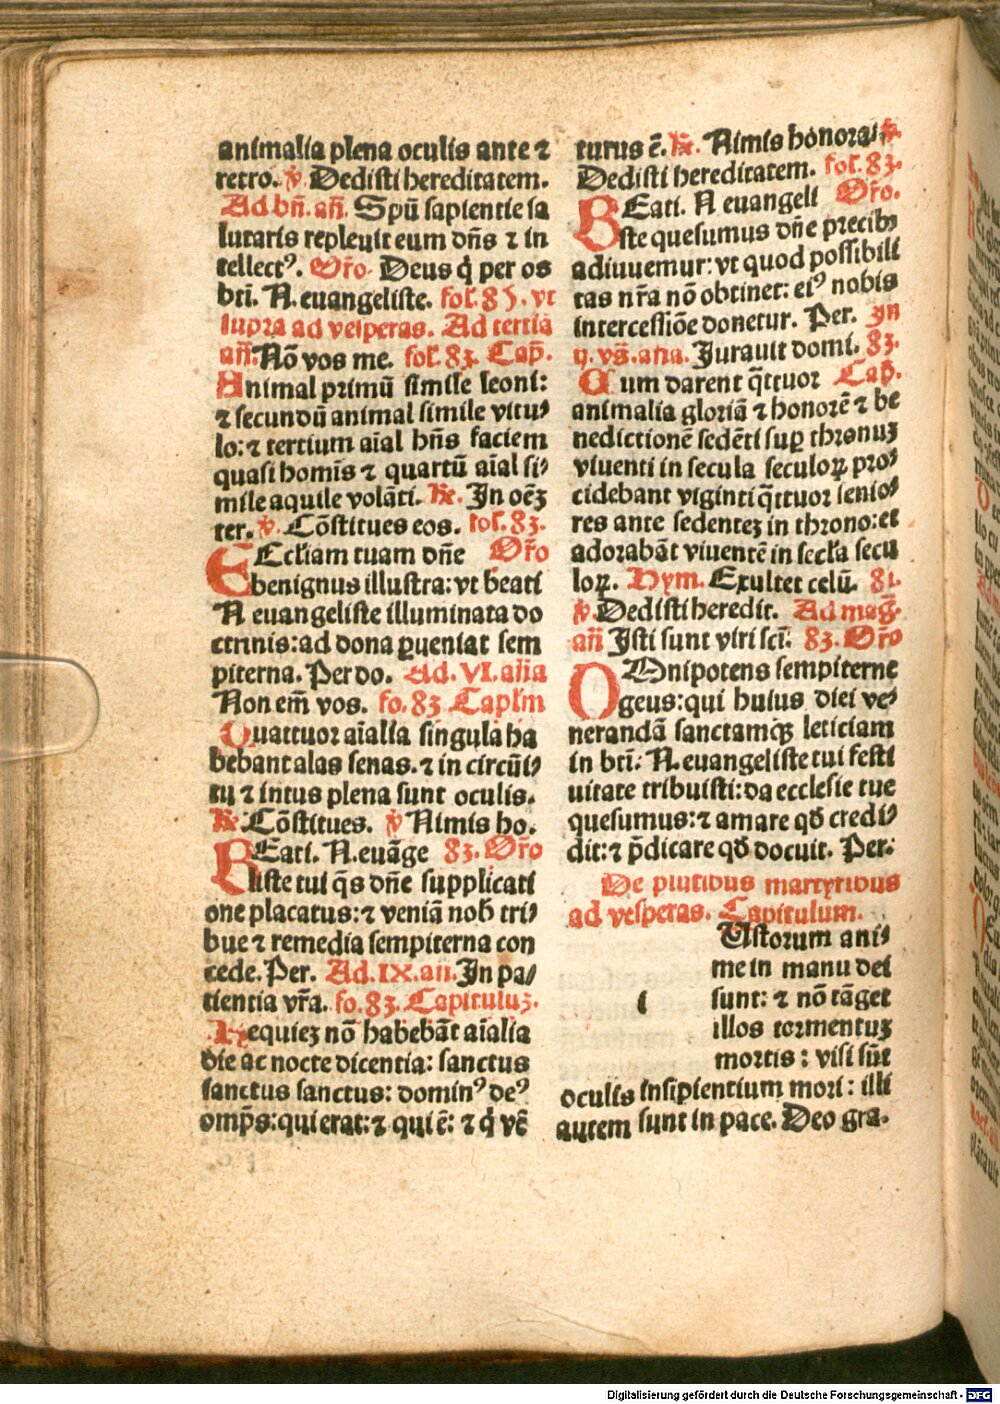 animalia plena oculis ante ⁊
retro. ℣. Dedisti hereditatem.
Ad bn̄. an̄. Spū sapientie sa
lutaris repleuit eum dn̄s ⁊ in
tellectꝰ. Or̄o. Deus q̇ per os
bti. N. euangeliste. fol. 85. vt
supra ad vesperas. Ad tertiā
an̄. Nō vos me. fol. 83. Cap̄.
Animal primū simile leoni:
⁊ secundū animal simile vitu⸗
lo: ⁊ tertium aīal hn̄s faciem
quasi homīs ⁊ quartū aīal si⸗
mile aquile volāti. ℟. In oēꝫ
ter. ℣. Cōstitues eos. fol. 83.
Eccliam tuam dn̄e Or̄o
benignus illustra: vt beati
N euangeliste illuminata do
ctrinis: ad dona ꝑueniat sem
piterna. Per do. Ad. VI. an̄a
Non em̄ vos. fo. 83 Capl̄m
Quattuor aīalia singula ha
bebant alas senas. ⁊ in circūi⸗
tu ⁊ intus plena sunt oculis.
℟. Cōstitues. ℣ Nimis ho.
BEati. N. euāge 83. Or̄o
liste tui q̄s dn̄e supplicati
one placatus: ⁊ veniā nob̄ tri⸗
bue ⁊ remedia sempiterna con
cede. Per. Ad. IX. an̄. In pa⸗
tientia vr̄a. fo. 83. Capituluꝫ.
Requieꝫ nō habebāt aīalia
die ac nocte dicentia: sanctus
sanctus sanctus: dominꝰ deꝰ
omp̄s: qui erat: ⁊ qui ē: ⁊ q̇ vē
turus ē. ℟. Nimis honorati
Dedisti hereditatem. fol. 83.
BEati. N euangeli Or̄o.
ste quesumus dn̄e precibꝰ
adiuuemur: vt quod possibili
tas nr̄a nō obtinet: eiꝰ nobis
intercessiōe donetur. Per. In
ij. vs̄. an̄a. Jurauit domi. 83.
Cum darent q̄ttuor Cap̄.
animalia gloriā ⁊ honorē ⁊ be
nedictionē sedēti suꝑ thronuꝫ
viuenti in secula seculoꝝ pro⸗
cidebant viginti q̄ttuor senio⸗
res ante sedenteꝫ in throno: et
adorabāt viuentē in secl̄a secu
loꝝ. Hym. Exultet celū. 81.
℣. Dedisti heredit. Ad maḡ.
an̄ Isti sunt viri sc̄i. 83. Or̄o
OMnipotens sempiterne
deus: qui huius diei ve⸗
nerandā sanctamqꝫ leticiam
in bti: N. euangeliste tui festi
uitate tribuisti: da ecclesie tue
quesumus: ⁊ amare qd̄ credi⸗
dit: ⁊ p̄dicare qd̄ docuit. Per.
De pluribus martyribus
ad vesperas. Capitulum.
i
Iustorum ani⸗
me in manu dei
sunt: ⁊ nō tāget
illos tormentuꝫ
mortis: visi sūt
oculis insipientium mori: illi
autem sunt in pace. Deo gra.
Digitalisierung gefördert durch die Deutsche Forschungsgemeinschaft - DFG